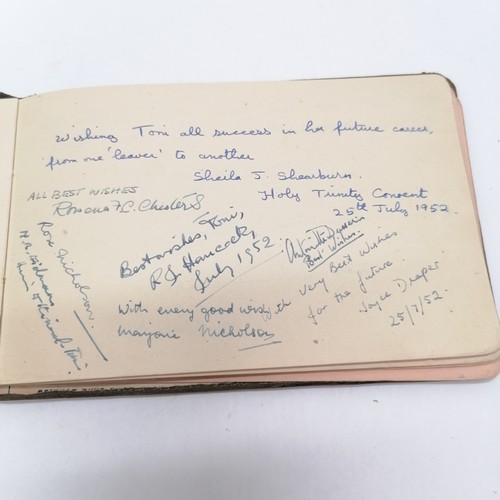 Wishing Toni all success in her future career,
from one 'leaver' to another
Sheila J. Shearburn.
Holy Trinity Convent
25th July 1952.
ALL BEST WISHES
Rosena
Rose Nicholson.
Best wishes, Toni,
R J Hancock,
July 1952.
Best Wishes.
With every good wish
Marjorie Nicholson
With very Best Wishes
for the future.
Joyce Draper
25/7/52.